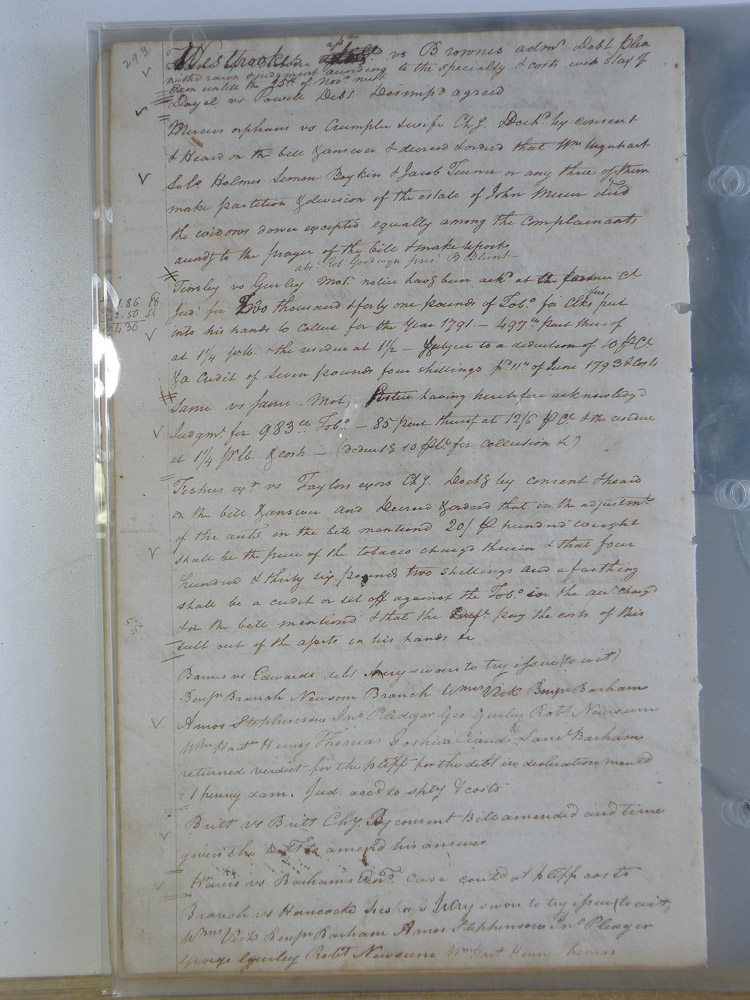 293
Westbrooke vs Brownes admr Debt Plea
withdrawn & judgment according to the specialty & costs with stay of
Exon untill the 25th of Novr next
Doyel vs Powell Debt Dismisd agreed
Mercers orphans vs Crumpler & wife Chy. Dockd by consent
& Heard on the bill & answer & decreed & orderd that Wm Urquhart
Holmes Lemon Boykin & Jacob Turner or any three of them
make partition & division of the estate of John Mercer decd
the widows dower excepted equally among the complainants
accordg to the prayer of the bill & make report
Rob Goodwyn B. Blunt
Tinsley vs Gurley Mot: notice havg been ackd at the former Ct
Jud: for Two thousand & forty one pounds of Tobo for Clks fees put
into his hands to collect for the Year 1791 — 497 part thereof
at 1¼ pr lb. & the residue at 1½ — Subject to a deduction of 10 p Ct
& a Credit of seven pounds four shillings pd 11th of June 1793 & Costs
1.86
2.50
4.36
Same vs Same Mot; Notice having heretofore acknowledgd
Judgmt for 983 Tobo — 85 part thereof at 12/6 p Ct & the residue
at 1¼ pr lb. & costs — (deductg 10 p Ct for collection &)
vs Taylors exors Chy. Dockd by consent & heard
on the bill & answer and Decreed & orderd that in the adjustmt
of the accts in the bill mentiond 20/ p hundred weight
shall be the price of the tobacco charged therein & that four
hundred & thirty six pounds two shillings and a farthing
shall be a credit or set off against the Tobo in the acct chargd
in the bill mentioned & that the Deft pay the costs of this
suit out of the assets in his hands &
Barnes vs Edwards debt Jury sworn to try issue (to wit)
Benjn Branch Newsom Branch Wm Vick Benjn Barham
Amos Stephenson Jno Pledger Geo Gurley Robt Newsum
Wm Hart Henry Thomas Joshua Claud Saml Barham
returned verdict for the pltff for the debt in declaration mentd
& 1 penny dam. Jud. accd to splty & costs
Britt vs Britt Chy. By consent Bill amended and time
given the Deft to amend his answer
Harris vs Barhams Exor. Case contd at pltffs costs
Branch vs Hancocke Trespass Jury sworn to try issue (to wit,
Wm Vick Benjn Barham Amos Stephenson Jno Pledger
George Gurley Robt Newsum Wm Hart Henry Thomas